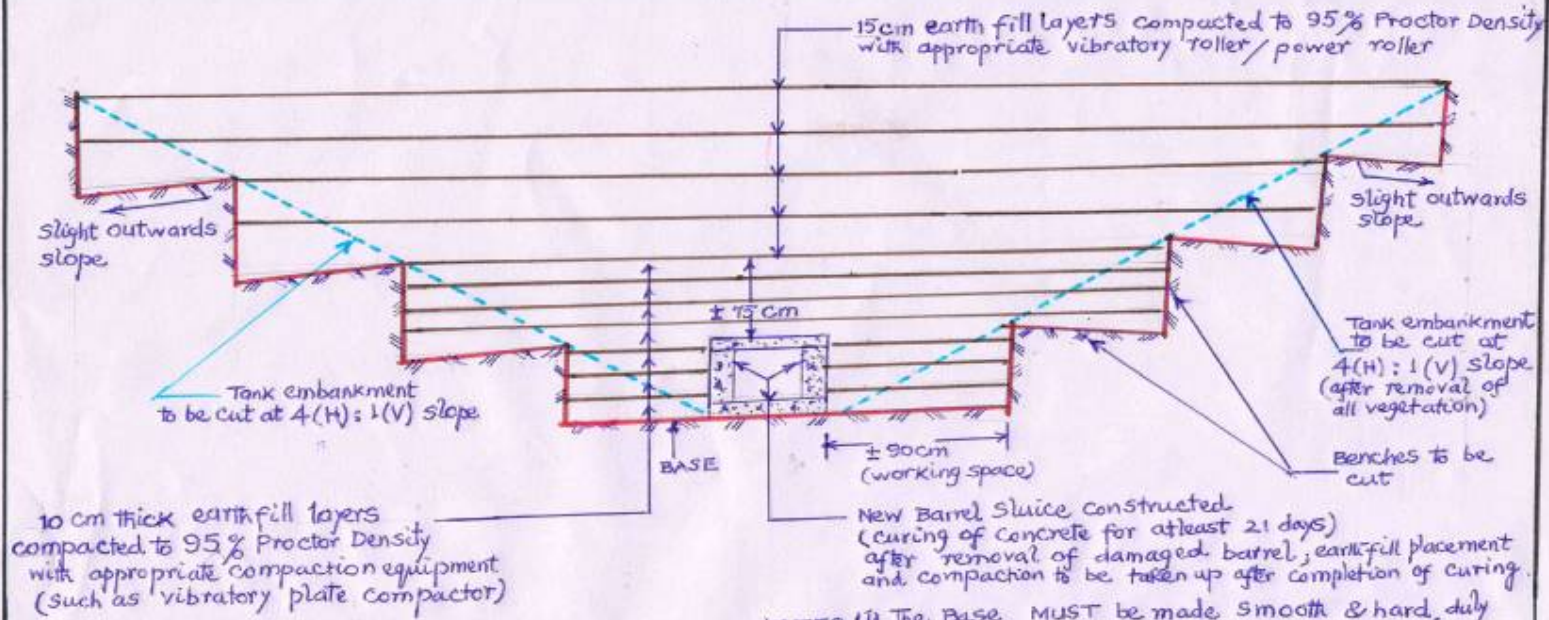 15cm earth fill layers compacted to 95% Proctor Density
with appropriate vibratory roller/power roller
slight outwards
slope
slight outwards
slope
± 75 cm
Tank embankment
to be cut at 4(H):1(V) slope
Tank embankment
to be cut at
4(H):1(V) slope
(after removal of
all vegetation)
BASE
± 90cm
(working space)
Benches to be
cut
10 cm thick earthfill layers
compacted to 95% Proctor Density
with appropriate compaction equipment
(such as vibratory plate compactor)
New Barrel Sluice constructed
(curing of concrete for atleast 21 days)
after removal of damaged barrel; earthfill placement
and compaction to be taken up after completion of curing.
The Base MUST be made smooth & hard, duly